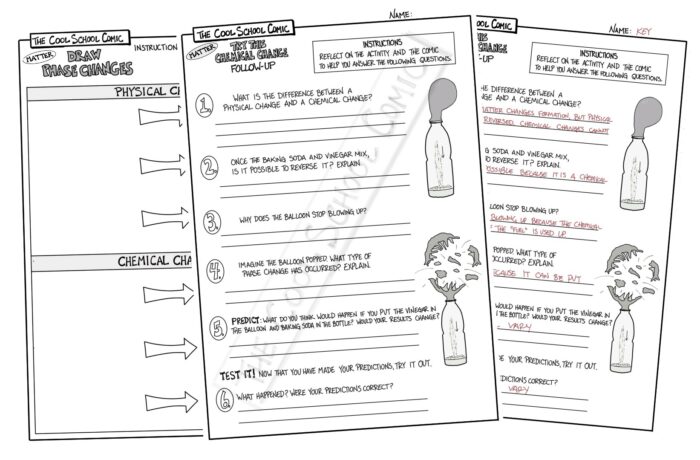 THE COOL SCHOOL COMIC
INSTRUCTION
MATTER:
DRAW
PHASE CHANGES
PHYSICAL CH
CHEMICAL CHA
NAME:
THE COOL SCHOOL COMIC
MATTER:
TRY THIS
CHEMICAL CHANGE
FOLLOW-UP
INSTRUCTIONS
REFLECT ON THE ACTIVITY AND THE COMIC
TO HELP YOU ANSWER THE FOLLOWING QUESTIONS.
1.
WHAT IS THE DIFFERENCE BETWEEN A
PHYSICAL CHANGE AND A CHEMICAL CHANGE?
2.
ONCE THE BAKING SODA AND VINEGAR MIX,
IS IT POSSIBLE TO REVERSE IT? EXPLAIN.
3.
WHY DOES THE BALLOON STOP BLOWING UP?
4.
IMAGINE THE BALLOON POPPED. WHAT TYPE OF
PHASE CHANGE HAS OCCURRED? EXPLAIN.
5.
PREDICT: WHAT DO YOU THINK WOULD HAPPEN IF YOU PUT THE VINEGAR IN
THE BALLOON AND BAKING SODA IN THE BOTTLE? WOULD YOUR RESULTS CHANGE?
TEST IT! NOW THAT YOU HAVE MADE YOUR PREDICTIONS, TRY IT OUT.
6.
WHAT HAPPENED? WERE YOUR PREDICTIONS CORRECT?
THE COOL SCHOOL COMIC
NAME: KEY
COMIC
THIS
CHANGE
-UP
INSTRUCTIONS
REFLECT ON THE ACTIVITY AND THE COMIC
TO HELP YOU ANSWER THE FOLLOWING QUESTIONS.
HE DIFFERENCE BETWEEN A
GE AND A CHEMICAL CHANGE?
MATTER CHANGES FORMATION, BUT PHYSICAL
REVERSED. CHEMICAL CHANGES CANNOT
G SODA AND VINEGAR MIX,
TO REVERSE IT? EXPLAIN.
POSSIBLE BECAUSE IT IS A CHEMICAL
LOON STOP BLOWING UP?
BLOWING UP BECAUSE THE CHEMICAL
THE "FUEL" IS USED UP.
POPPED. WHAT TYPE OF
OCCURRED? EXPLAIN.
ECAUSE IT CAN BE PUT
WOULD HAPPEN IF YOU PUT THE VINEGAR IN
THE BOTTLE? WOULD YOUR RESULTS CHANGE?
VARY
E YOUR PREDICTIONS, TRY IT OUT.
DICTIONS CORRECT?
VARY